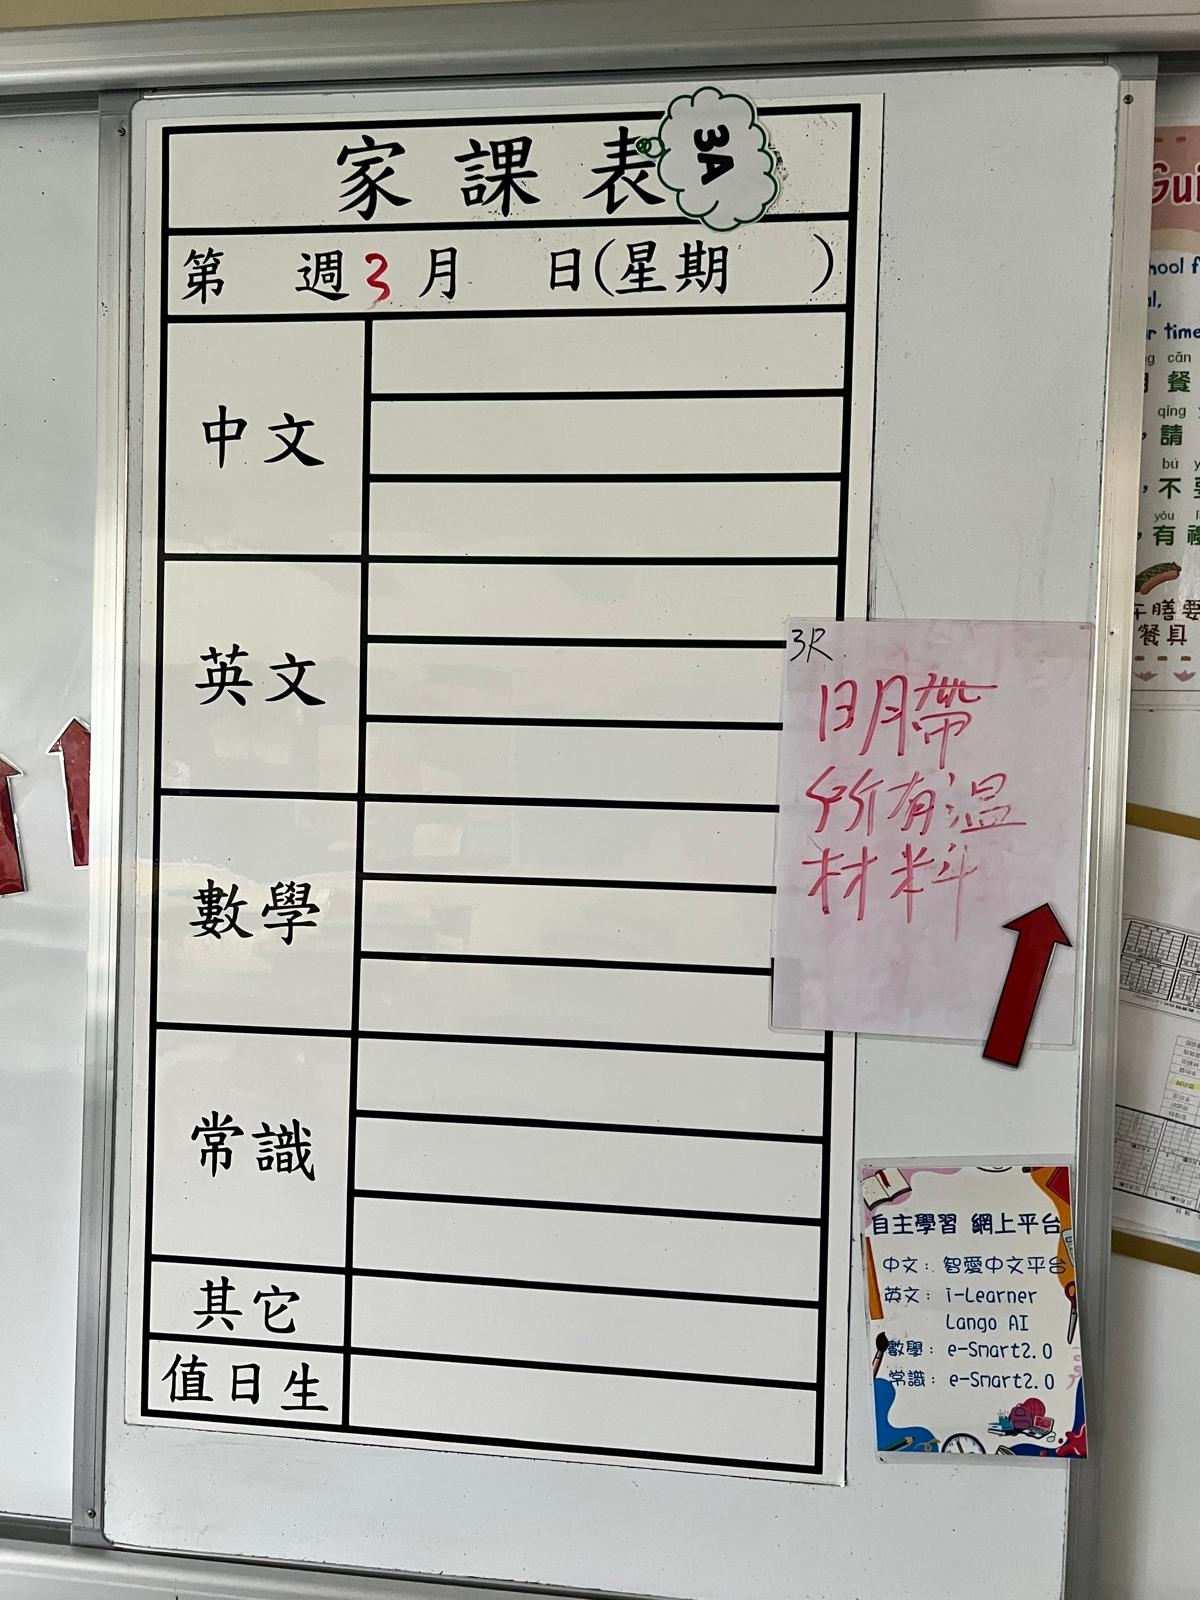 家課表
3A
第 週3月 日(星期 )
中文
英文
數學
常識
其它
值日生
3R
日月帶
所有溫
材料
自主學習 網上平台
中文：智愛中文平台
英文：i-Learner
Lango AI
數學：e-Smart2.0
常識：e-Smart2.0
Gui
hool f
al,
r time
cān
餐
qǐng
，請
bú y
，不
yǒu
，有禮
午膳要
餐具